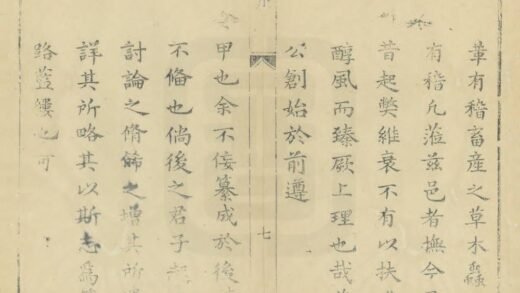 葦有稽畜產之草木蟲
有稽凡蒞茲邑者撫今
昔起獘維衰不有以扶
醇風而臻厥上理也哉
公創始於前遵
七
甲也余不佞纂成於後
不備也倘後之君子起
討論之脩飾之增其所
詳其所略其以斯志爲
路藍縷也可